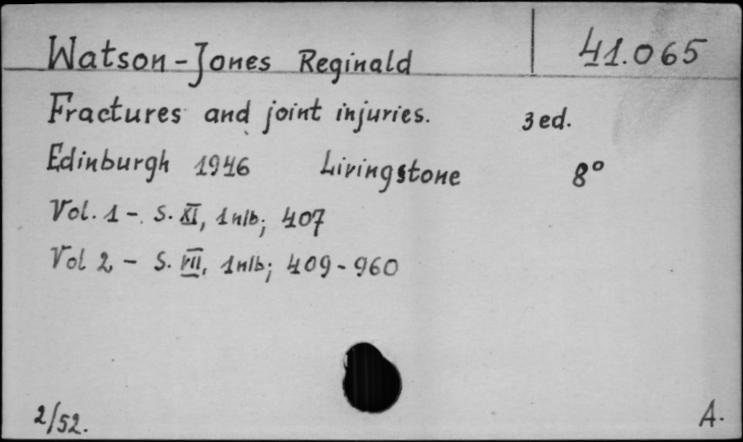 Watson-Jones Reginald 41.065
Fractures and joint injuries. 3 ed.
Edinburgh 1946 Livingstone 8°
Vol. 1 - S. XI, 1 nlb; 407
Vol 2 - S. VII, 1nlb; 409-960
2/52. A.